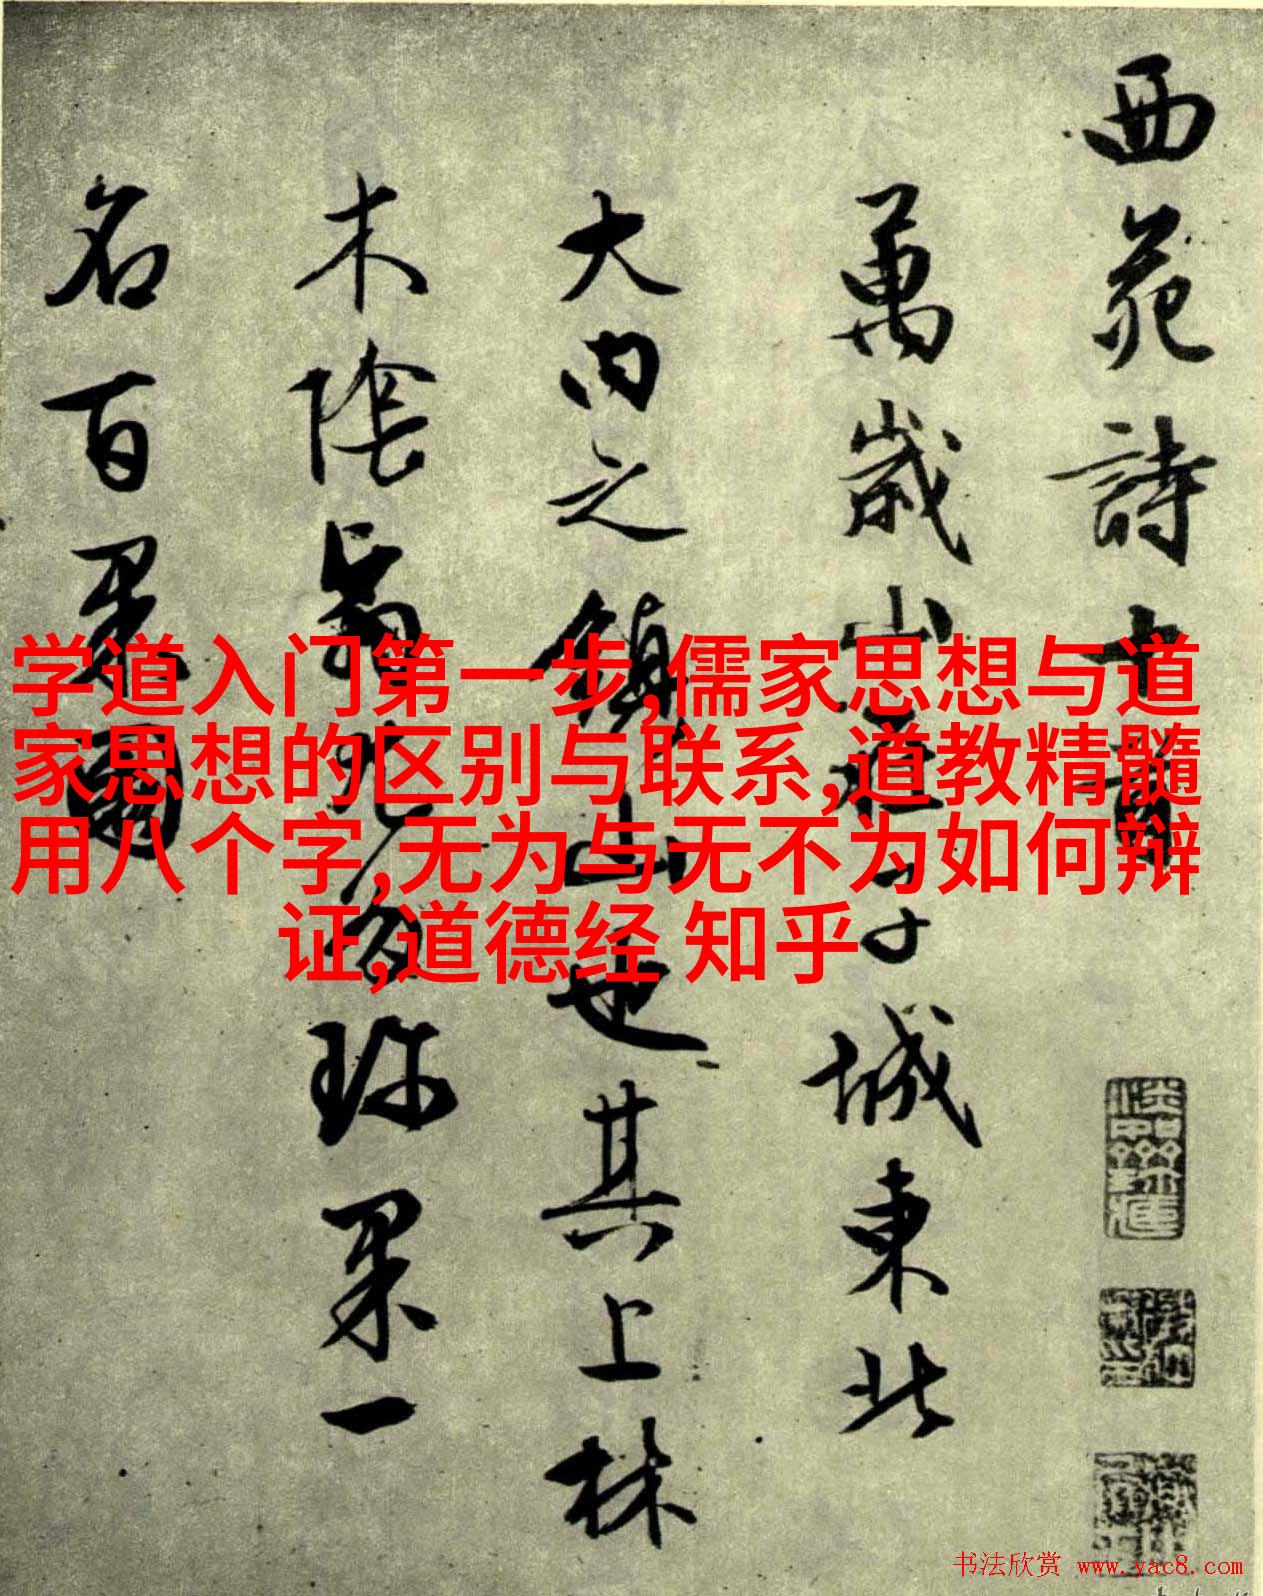 西苑詩十首
萬歲山在子城東北
大内之鎮山也其上林
木陰翳尤多珍果一
名百果園
学道入门第一步,儒家思想与道
家思想的区别与联系,道教精髓
用八个字,无为与无不为如何辩
证,道德经 知乎
书法欣赏 www.yac8.com